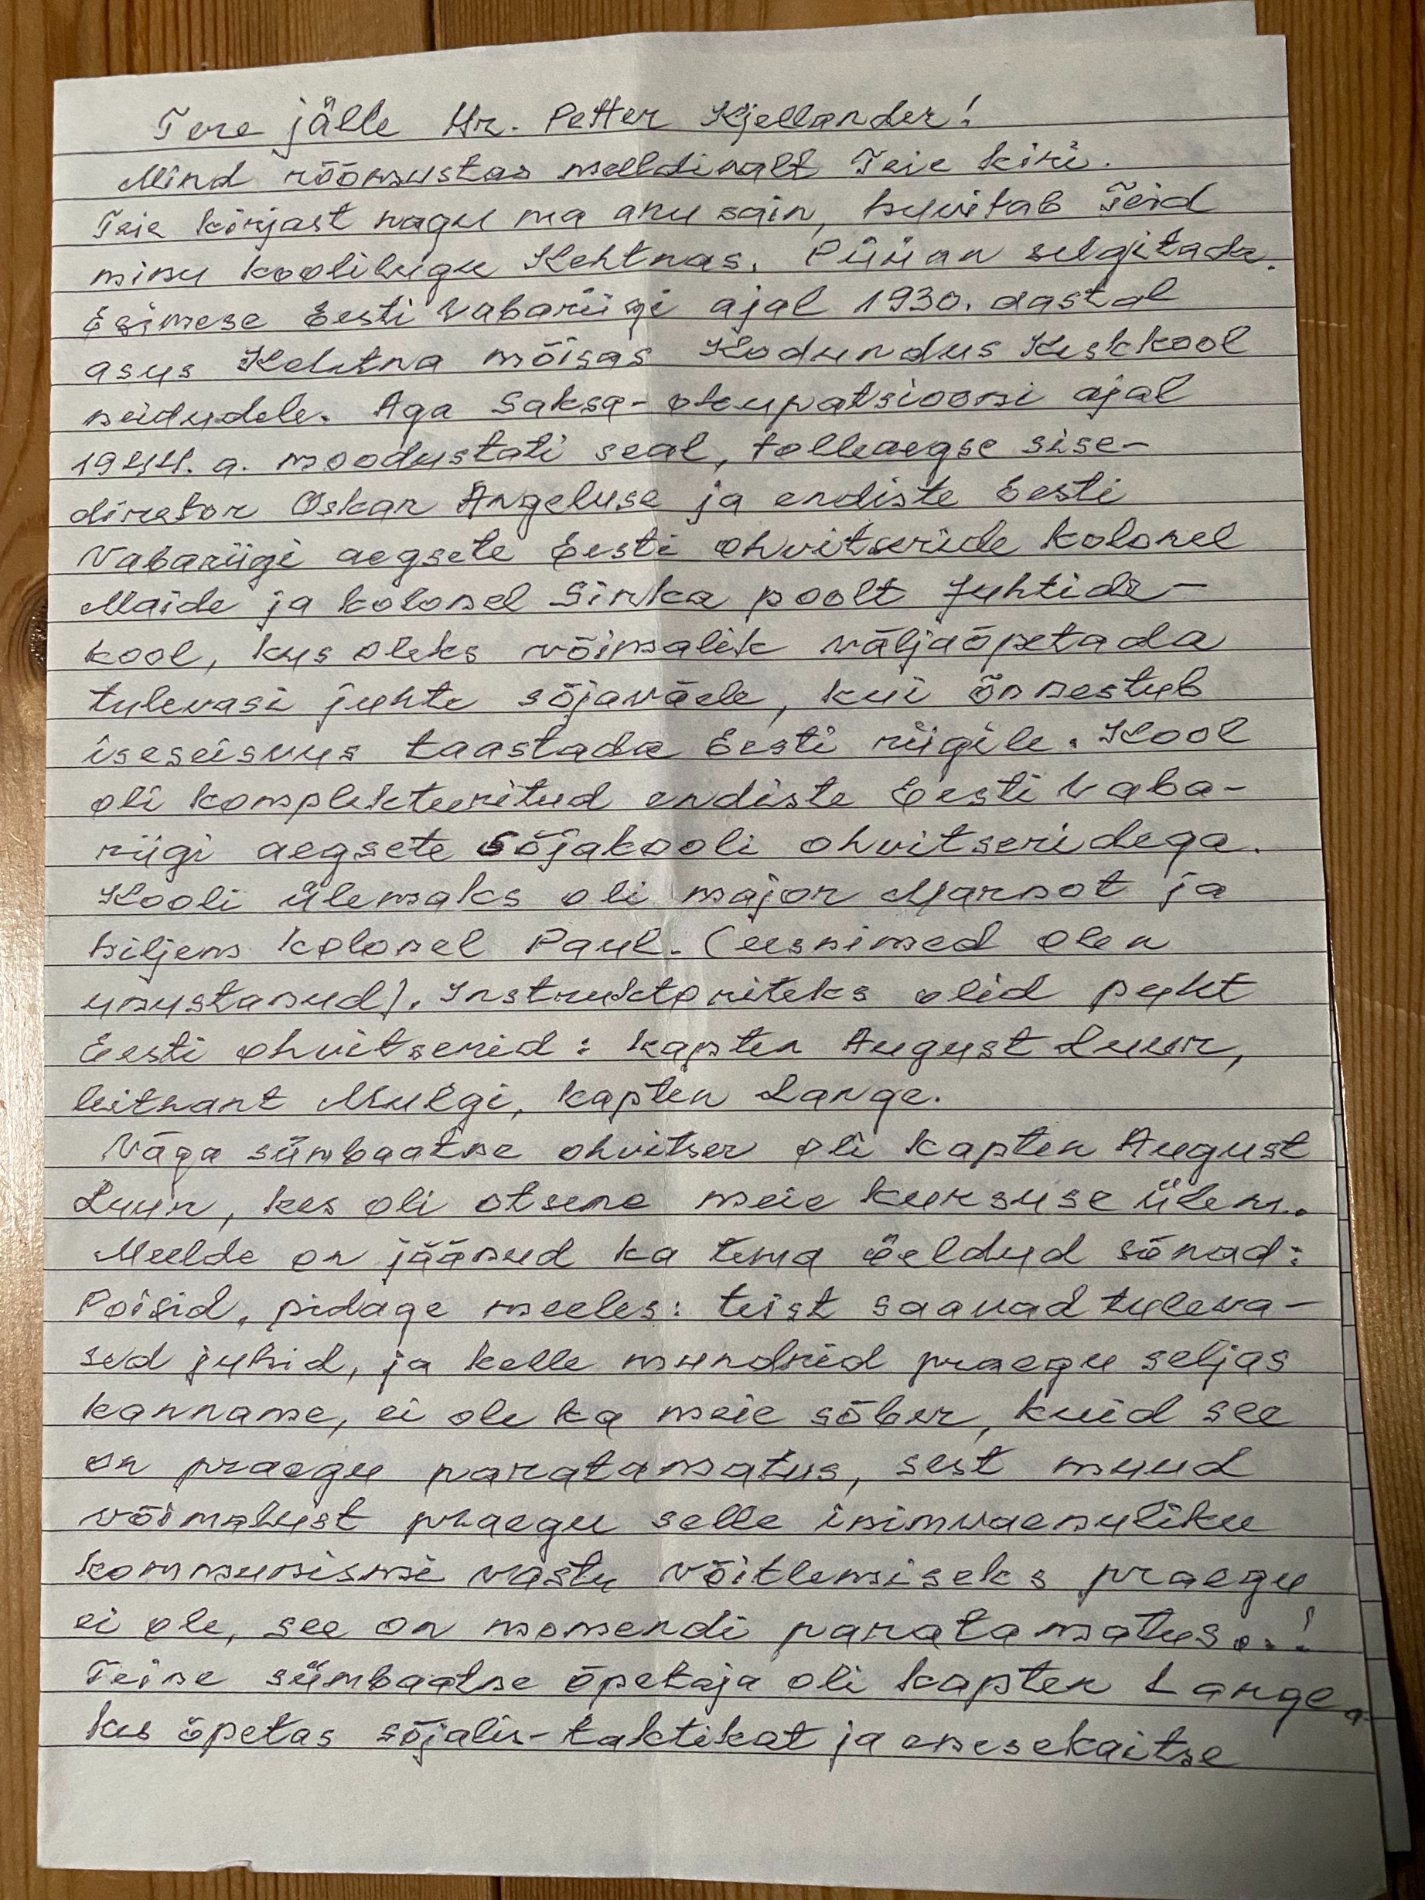 Tere jälle Hr. Petter Kjellander!
Mind rõõmustas meeldivalt Teie kiri.
Teie kirjast nagu ma aru sain, huvitab Teid
minu koolilugu Kehtnas. Püüan selgitada.
Esimese Eesti Vabariigi ajal 1930. aastal
asus Kehtna mõisas Kodundus Keskkool
neidudele. Aga Saksa-okupatsiooni ajal
1944. a. moodustati seal, tolleaegse sise-
diretor Oskar Angeluse ja endiste Eesti
Vabariigi aegsete Eesti ohvitseride kolonel
Maide ja kolonel Sinka poolt Juhtide-
kool, kus oleks võimalik väljaõpetada
tulevasi juhte sõjaväele, kui õnnestub
iseseisvus taastada Eesti riigile. Kool
oli komplekteeritud endiste Eesti Vaba-
riigi aegsete sõjakooli ohvitseridega.
Kooli ülemaks oli major Marnot ja
hiljem kolonel Paul. (eesnimed olen
unustanud). Instruktoriteks olid puht
Eesti ohvitserid: kapten August Luur,
leitnant Mulgi, kapten Lange.
Väga sümbaatne ohvitser oli kapten August
Luur, kes oli otsene meie kursuse ülem.
Meelde on jäänud ka tema öeldud sõnad:
Poisid, pidage meeles: teist saavad tuleva-
sed juhid, ja kelle mundrid praegu seljas
kanname, ei ole ka meie sõber, kuid see
on praegu paratamatus, sest muud
võimalust praegu selle inimvaenuliku
kommunismi vastu võitlemiseks praegu
ei ole, see on momendi paratamatus..!
Teine sümbaatne õpetaja oli kapten Lange,
kes õpetas sõjalis-taktikat ja enesekaitse